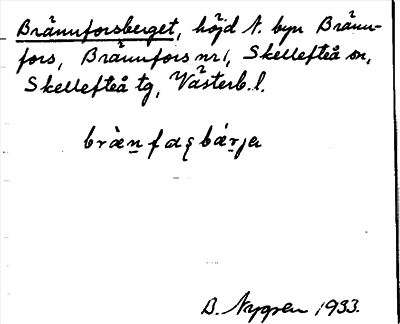 Brännforsberget, höjd N. byn Bränn-
fors, Brännfors nr 1, Skellefteå sn,
Skellefteå tg, Västerb. l.
B. Nygren 1933.